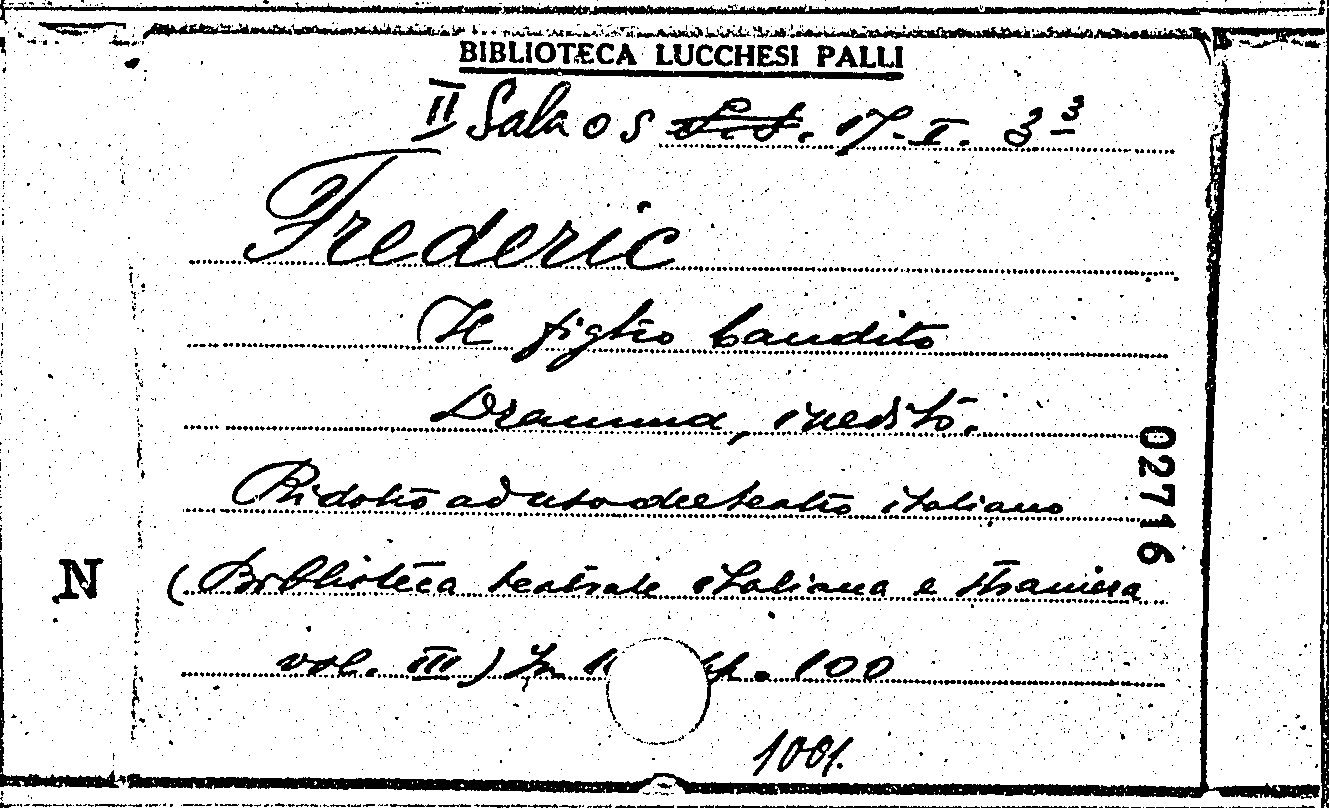 BIBLIOTECA LUCCHESI PALLI
II Sala 05 17-I. 3 3
Frederic
Il figlio bandito
Dramma, inedito.
Ridotto ad uso del teatro italiano
02716
N
(Biblioteca teatrale italiana e straniera
vol. III) In pp. 100
1001.